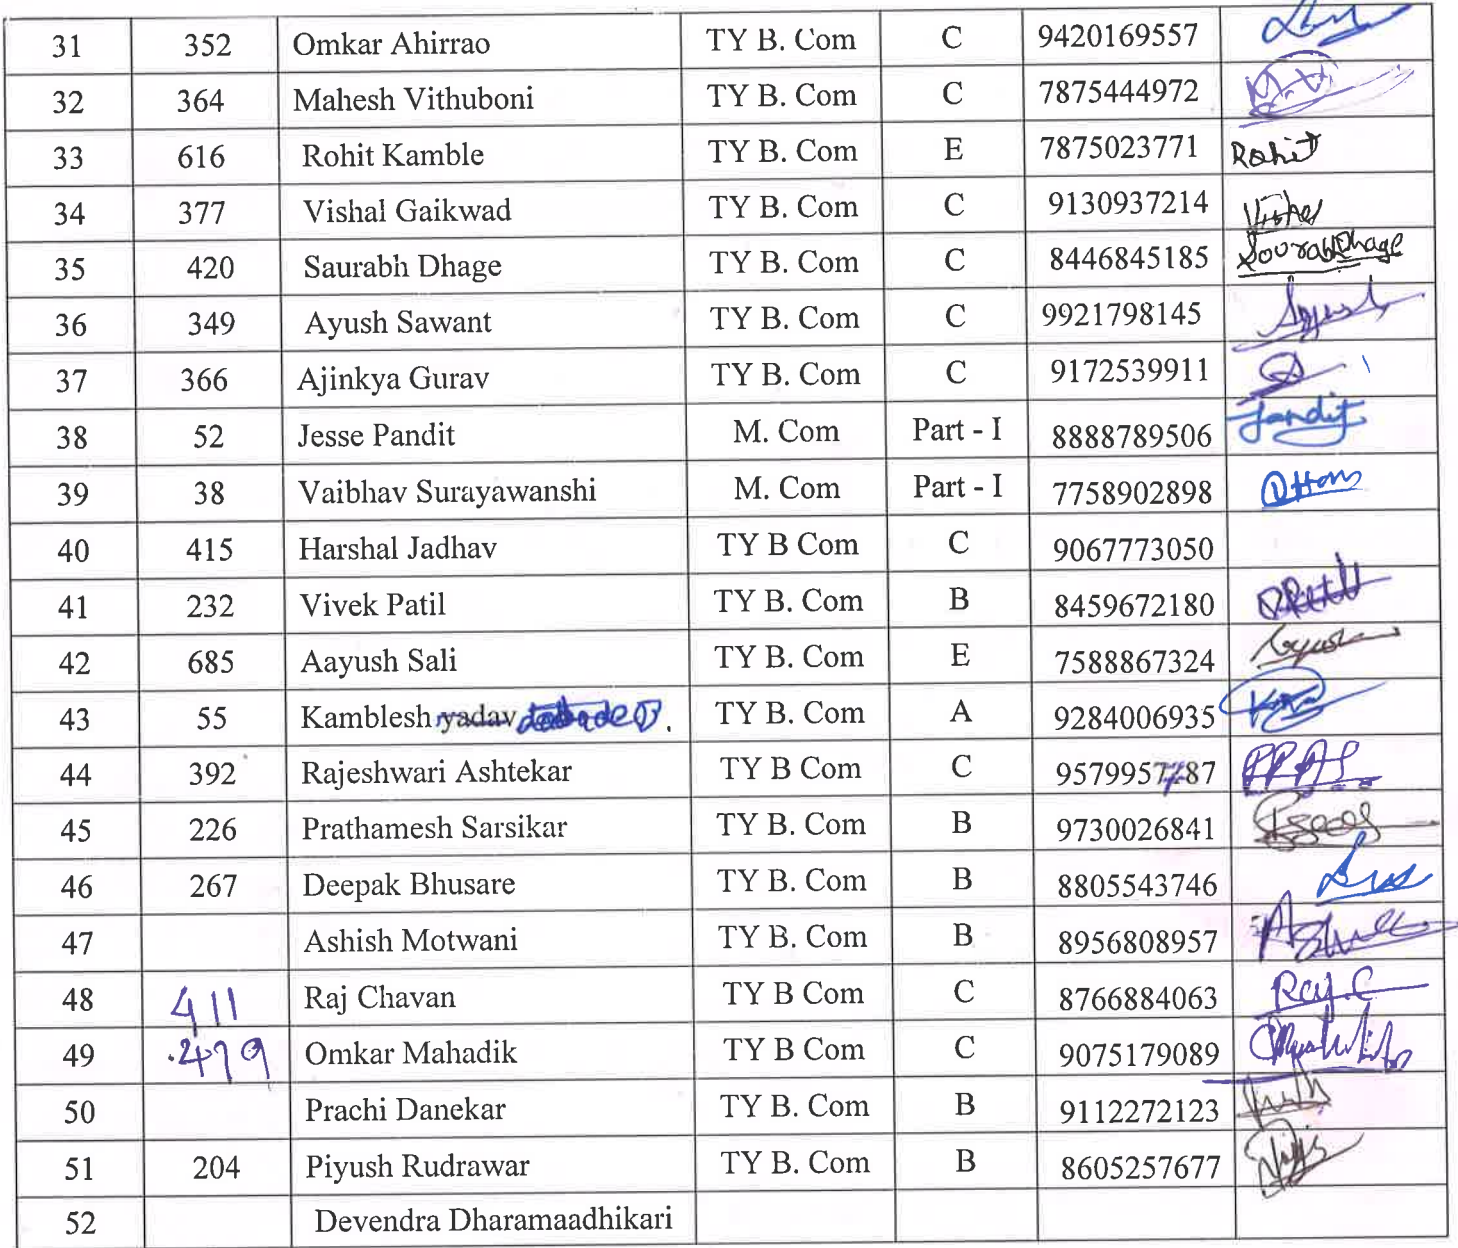 31 352 Omkar Ahirrao TY B. Com C 9420169557
32 364 Mahesh Vithuboni TY B. Com C 7875444972
33 616 Rohit Kamble TY B. Com E 7875023771 Rohit
34 377 Vishal Gaikwad TY B. Com C 9130937214
35 420 Saurabh Dhage TY B. Com C 8446845185 Sourabh Dhage
36 349 Ayush Sawant TY B. Com C 9921798145
37 366 Ajinkya Gurav TY B. Com C 9172539911
38 52 Jesse Pandit M. Com Part - I 8888789506
39 38 Vaibhav Surayawanshi M. Com Part - I 7758902898
40 415 Harshal Jadhav TY B Com C 9067773050
41 232 Vivek Patil TY B. Com B 8459672180
42 685 Aayush Sali TY B. Com E 7588867324
43 55 Kamblesh yadav TY B. Com A 9284006935
44 392 Rajeshwari Ashtekar TY B Com C 9579957787
45 226 Prathamesh Sarsikar TY B. Com B 9730026841
46 267 Deepak Bhusare TY B. Com B 8805543746
47 Ashish Motwani TY B. Com B 8956808957
48 411 Raj Chavan TY B Com C 8766884063 Raj.C
49 479 Omkar Mahadik TY B Com C 9075179089
50 Prachi Danekar TY B. Com B 9112272123
51 204 Piyush Rudrawar TY B. Com B 8605257677
52 Devendra Dharamaadhikari